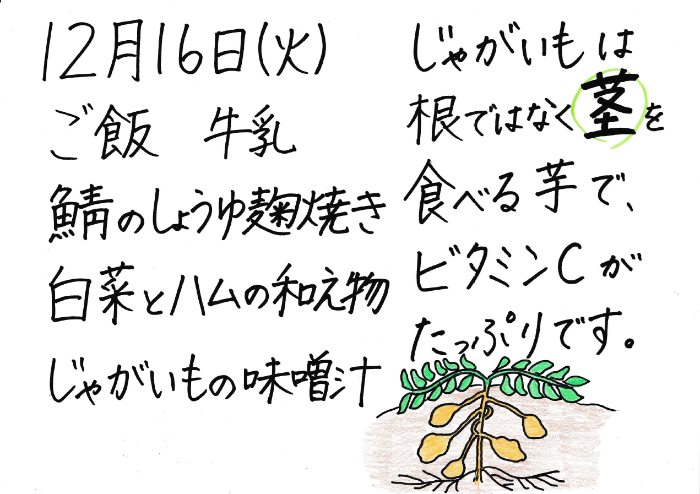 12月16日(火)
ご飯 牛乳
鯖のしょうゆ麹焼き
白菜とハムの和え物
じゃがいもの味噌汁
じゃがいもは
根ではなく茎を
食べる芋で、
ビタミンCが
たっぷりです。